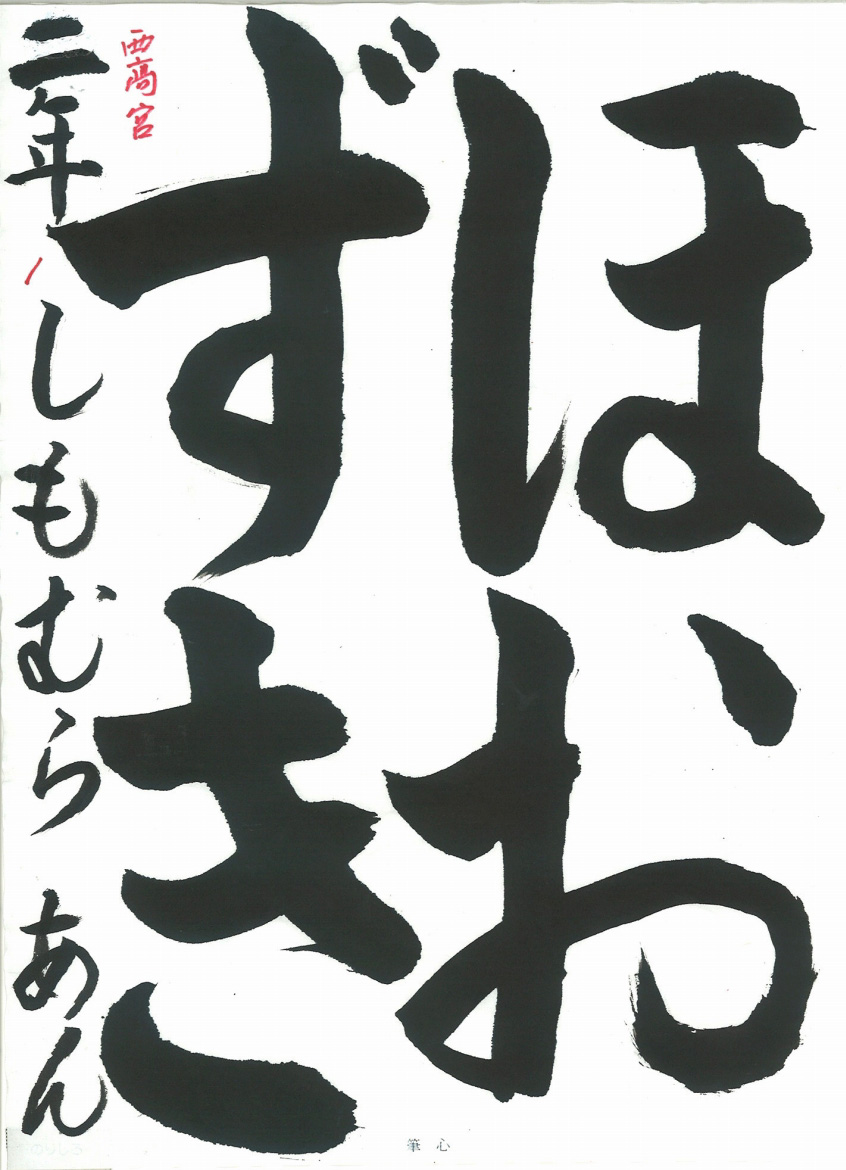 ほお
ずき
西高宮
二年 しもむら あん
筆心